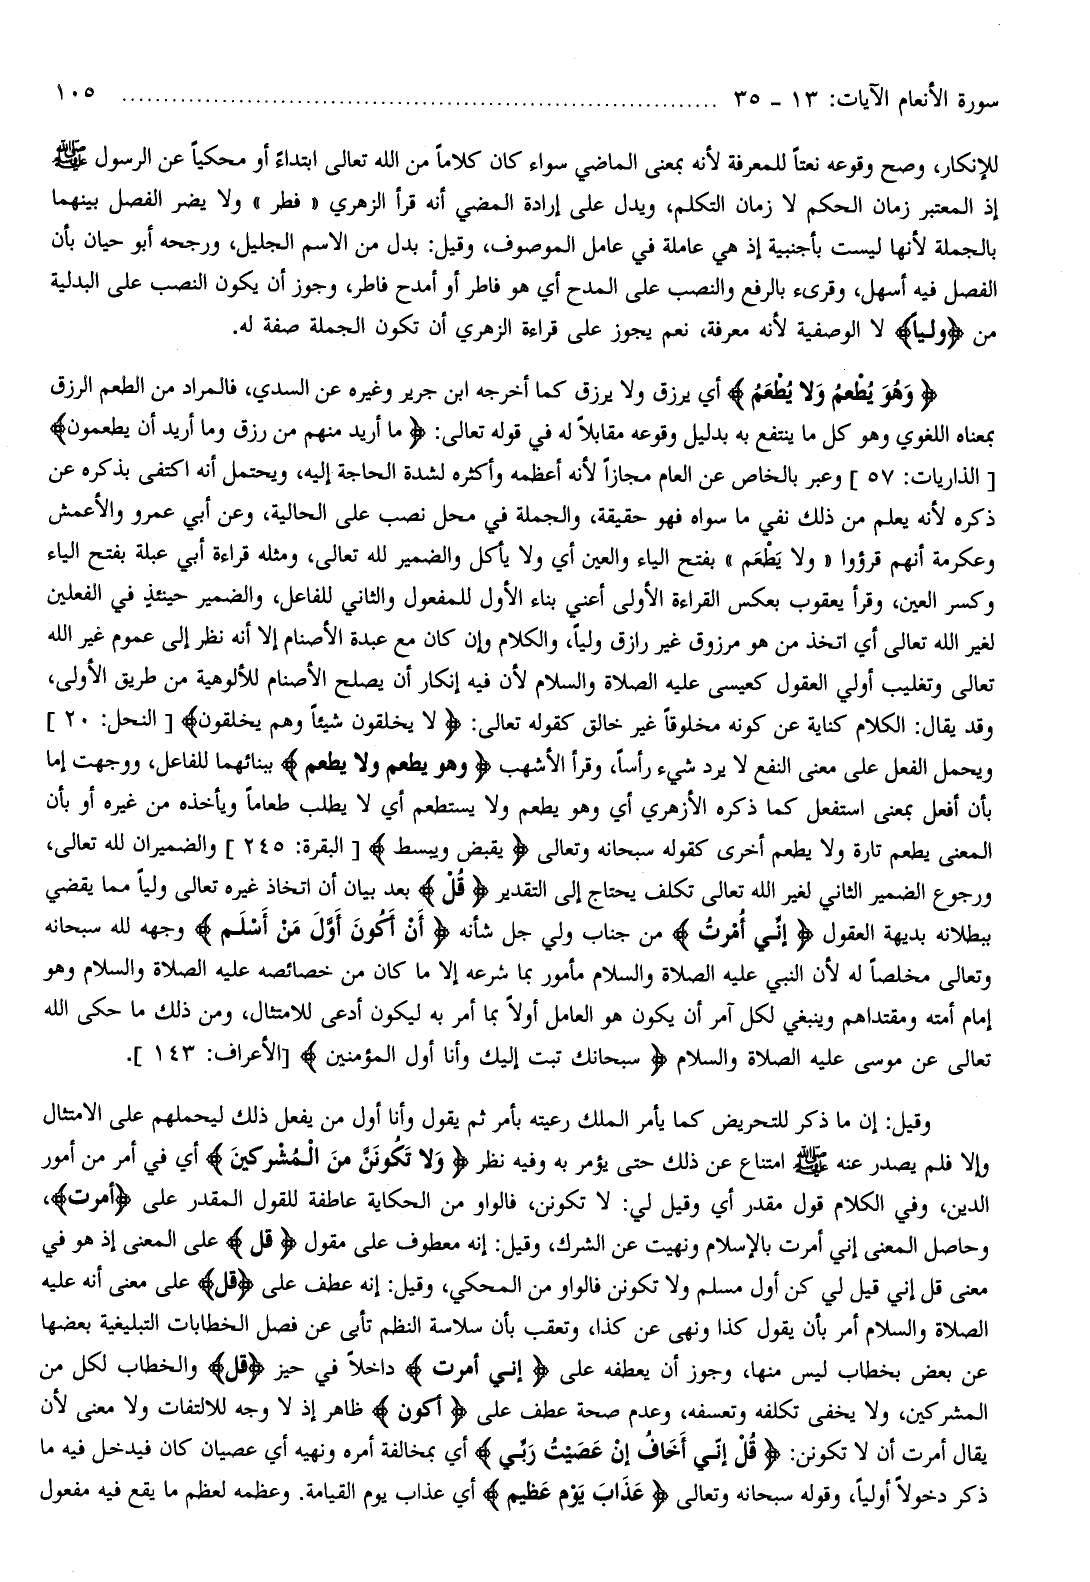 سورة الأنعام الآيات: ١٣ ـ ٣٥ ........................................................................ ١٠٥
للإنكار، وصح وقوعه نعتاً للمعرفة لأنه بمعنى الماضي سواء كان كلاماً من الله تعالى ابتداءً أو محكياً عن الرسول ﷺ
إذ المعتبر زمان الحكم لا زمان التكلم، ويدل على إرادة المضي أنه قرأ الزهري « فطر » ولا يضر الفصل بينهما
بالجملة لأنها ليست بأجنبية إذ هي عاملة في عامل الموصوف، وقيل: بدل من الاسم الجليل، ورجحه أبو حيان بأن
الفصل فيه أسهل، وقرىء بالرفع والنصب على المدح أي هو فاطر أو أمدح فاطر، وجوز أن يكون النصب على البدلية
من ﴿ولياً﴾ لا الوصفية لأنه معرفة، نعم يجوز على قراءة الزهري أن تكون الجملة صفة له.
﴿ وَهُوَ يُطْعِمُ وَلا يُطْعَمُ ﴾ أي يرزق ولا يرزق كما أخرجه ابن جرير وغيره عن السدي، فالمراد من الطعم الرزق
بمعناه اللغوي وهو كل ما ينتفع به بدليل وقوعه مقابلاً له في قوله تعالى: ﴿ ما أريد منهم من رزق وما أريد أن يطعمون﴾
[ الذاريات: ٥٧ ] وعبر بالخاص عن العام مجازاً لأنه أعظمه وأكثره لشدة الحاجة إليه، ويحتمل أنه اكتفى بذكره عن
ذكره لأنه يعلم من ذلك نفي ما سواه فهو حقيقة، والجملة في محل نصب على الحالية، وعن أبي عمرو والأعمش
وعكرمة أنهم قرؤوا « ولا يَطْعَم » بفتح الياء والعين أي ولا يأكل والضمير لله تعالى، ومثله قراءة أبي عبلة بفتح الياء
وكسر العين، وقرأ يعقوب بعكس القراءة الأولى أعني بناء الأول للمفعول والثاني للفاعل، والضمير حينئذٍ في الفعلين
لغير الله تعالى أي اتخذ من هو مرزوق غير رازق ولياً، والكلام وإن كان مع عبدة الأصنام إلا أنه نظر إلى عموم غير الله
تعالى وتغليب أولي العقول كعيسى عليه الصلاة والسلام لأن فيه إنكار أن يصلح الأصنام للألوهية من طريق الأولى،
وقد يقال: الكلام كناية عن كونه مخلوقاً غير خالق كقوله تعالى: ﴿ لا يخلقون شيئاً وهم يخلقون﴾ [ النحل: ٢٠ ]
ويحمل الفعل على معنى النفع لا يرد شيء رأساً، وقرأ الأشهب ﴿ وهو يطعم ولا يطعم ﴾ ببنائهما للفاعل، ووجهت إما
بأن أفعل بمعنى استفعل كما ذكره الأزهري أي وهو يطعم ولا يستطعم أي لا يطلب طعاماً ويأخذه من غيره أو بأن
المعنى يطعم تارة ولا يطعم أخرى كقوله سبحانه وتعالى ﴿ يقبض ويبسط ﴾ [ البقرة: ٢٤٥ ] والضميران لله تعالى،
ورجوع الضمير الثاني لغير الله تعالى تكلف يحتاج إلى التقدير ﴿ قُلْ ﴾ بعد بيان أن اتخاذ غيره تعالى ولياً مما يقضي
ببطلانه بديهة العقول ﴿ إنِّي أُمْرتُ ﴾ من جناب ولي جل شأنه ﴿ أَنْ أَكُونَ أَوَّلَ مَنْ أَسْلَم ﴾ وجهه لله سبحانه
وتعالى مخلصاً له لأن النبي عليه الصلاة والسلام مأمور بما شرعه إلا ما كان من خصائصه عليه الصلاة والسلام وهو
إمام أمته ومقتداهم وينبغي لكل آمر أن يكون هو العامل أولاً بما أمر به ليكون أدعى للامتثال، ومن ذلك ما حكى الله
تعالى عن موسى عليه الصلاة والسلام ﴿ سبحانك تبت إليك وأنا أول المؤمنين ﴾ [الأعراف: ١٤٣ ].
وقيل: إن ما ذكر للتحريض كما يأمر الملك رعيته بأمر ثم يقول وأنا أول من يفعل ذلك ليحملهم على الامتثال
وإلا فلم يصدر عنه ﷺ امتناع عن ذلك حتى يؤمر به وفيه نظر ﴿ وَلا تَكُونَنَّ منَ الْمُشْركينَ ﴾ أي في أمر من أمور
الدين، وفي الكلام قول مقدر أي وقيل لي: لا تكونن، فالواو من الحكاية عاطفة للقول المقدر على ﴿أمرت﴾،
وحاصل المعنى إني أمرت بالإسلام ونهيت عن الشرك، وقيل: إنه معطوف على مقول ﴿ قل ﴾ على المعنى إذ هو في
معنى قل إني قيل لي كن أول مسلم ولا تكونن فالواو من المحكي، وقيل: إنه عطف على ﴿قل﴾ على معنى أنه عليه
الصلاة والسلام أمر بأن يقول كذا ونهى عن كذا، وتعقب بأن سلاسة النظم تأبى عن فصل الخطابات التبليغية بعضها
عن بعض بخطاب ليس منها، وجوز أن يعطفه على ﴿ إني أمرت ﴾ داخلاً في حيز ﴿قل﴾ والخطاب لكل من
المشركين، ولا يخفى تكلفه وتعسفه، وعدم صحة عطف على ﴿ أكون ﴾ ظاهر إذ لا وجه للالتفات ولا معنى لأن
يقال أمرت أن لا تكونن: ﴿ قُلْ إنِّي أَخَافُ إنْ عَصَيْتُ رَبِّي ﴾ أي بمخالفة أمره ونهيه أي عصيان كان فيدخل فيه ما
ذكر دخولاً أولياً، وقوله سبحانه وتعالى ﴿ عَذَابَ يَوْم عَظيم ﴾ أي عذاب يوم القيامة. وعظمه لعظم ما يقع فيه مفعول